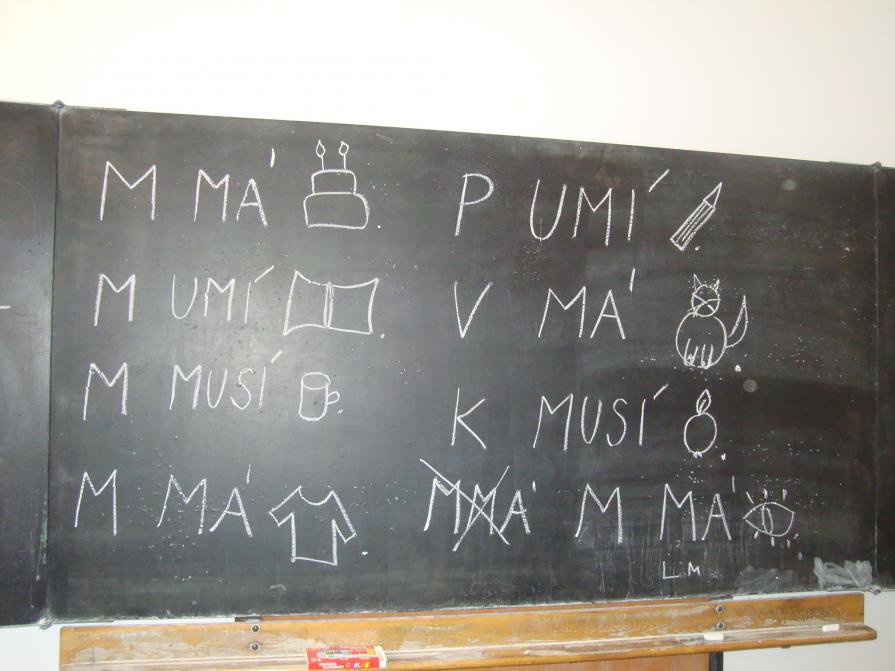 M MÁ .
M UMÍ .
M MUSÍ .
M MÁ .
P UMÍ .
V MÁ .
K MUSÍ .
MMÁ M MÁ
LM